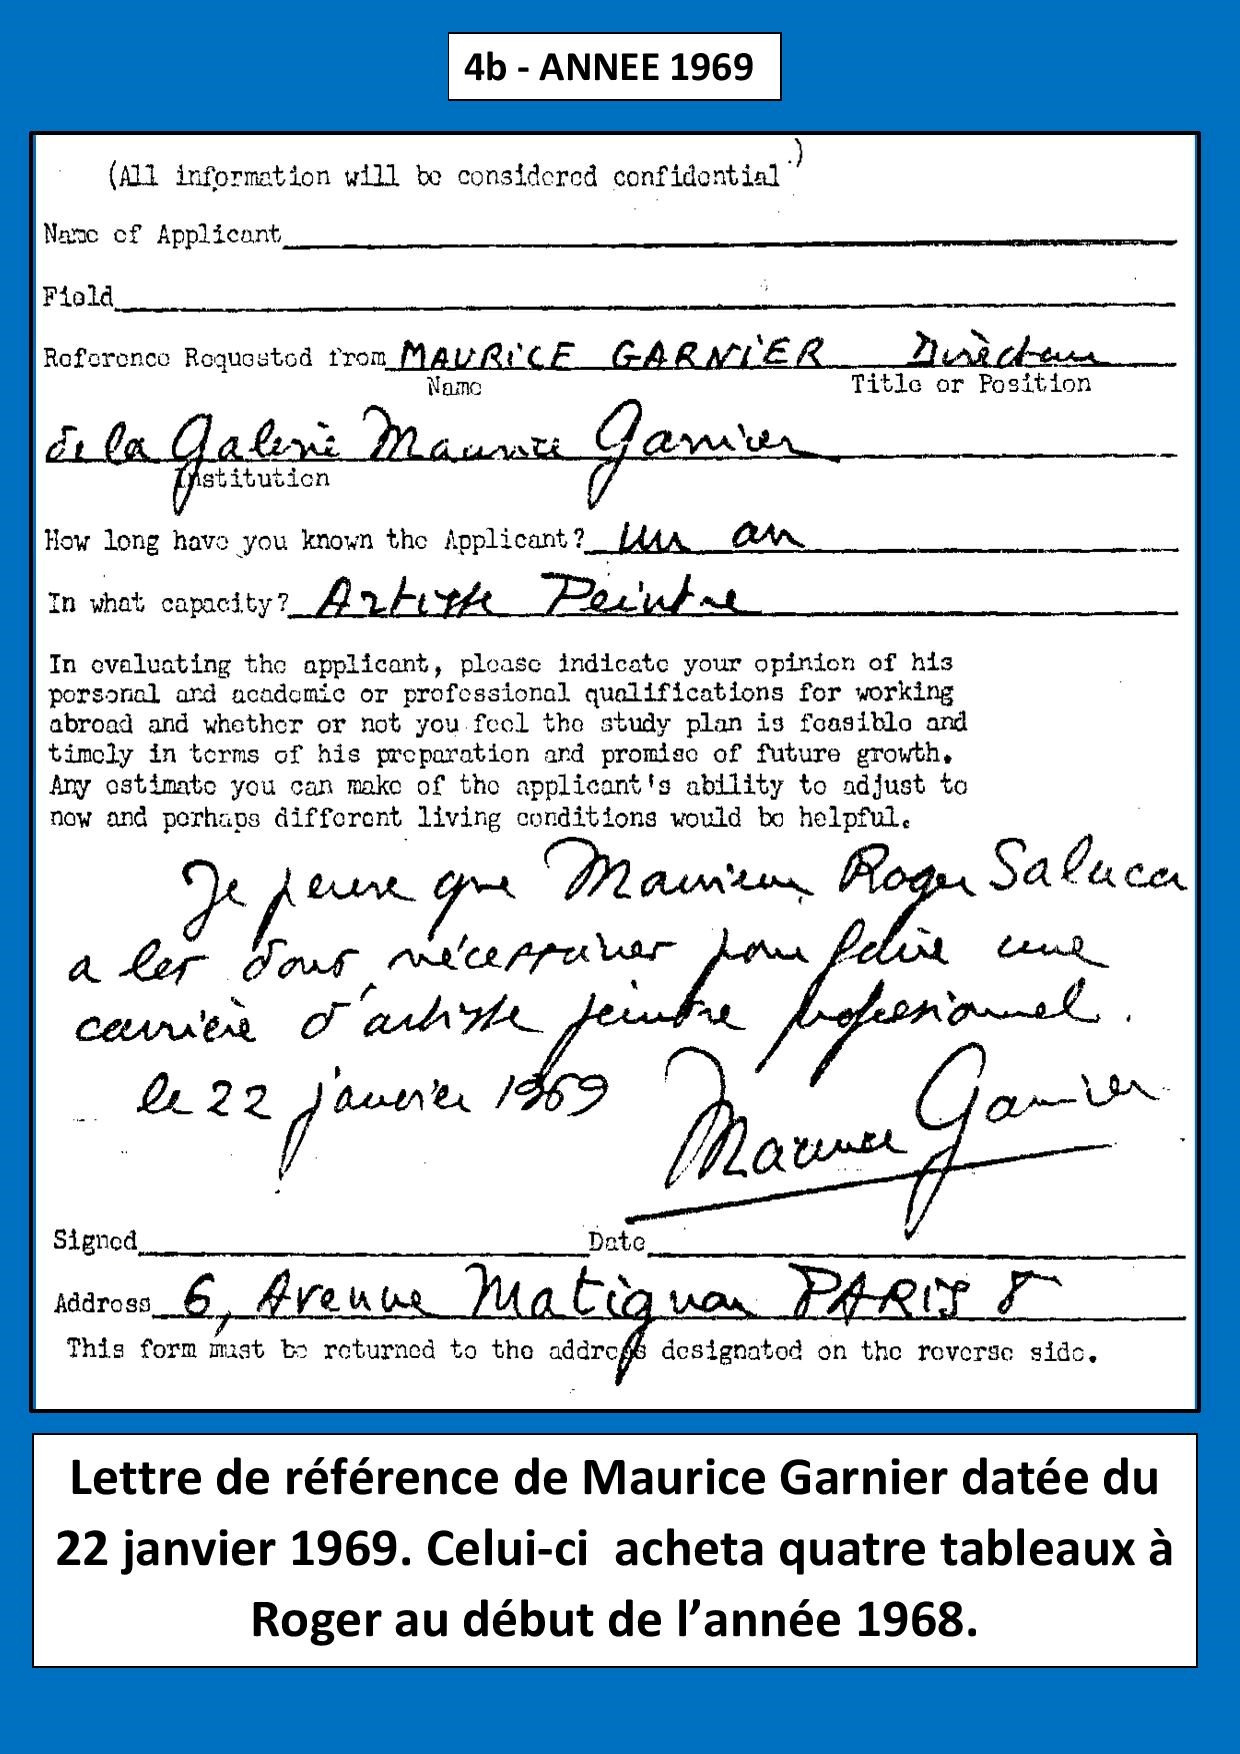 4b - ANNEE 1969
(All information will be considered confidential.)
Name of Applicant
Field
Reference Requested from MAURICE GARNIER Directeur
Name Title or Position
de la Galerie Maurice Garnier
Institution
How long have you known the Applicant? un an
In what capacity? Artiste Peintre
In evaluating the applicant, please indicate your opinion of his
personal and academic or professional qualifications for working
abroad and whether or not you feel the study plan is feasible and
timely in terms of his preparation and promise of future growth.
Any estimate you can make of the applicant's ability to adjust to
new and perhaps different living conditions would be helpful.
Je pense que Monsieur Roger Salucci
a les dons nécessaires pour faire une
carrière d'artiste peintre professionnel.
le 22 janvier 1969 Maurice Garnier
Signed Date
Address 6, Avenue Matignon PARIS 8
This form must be returned to the address designated on the reverse side.
Lettre de référence de Maurice Garnier datée du
22 janvier 1969. Celui-ci acheta quatre tableaux à
Roger au début de l’année 1968.